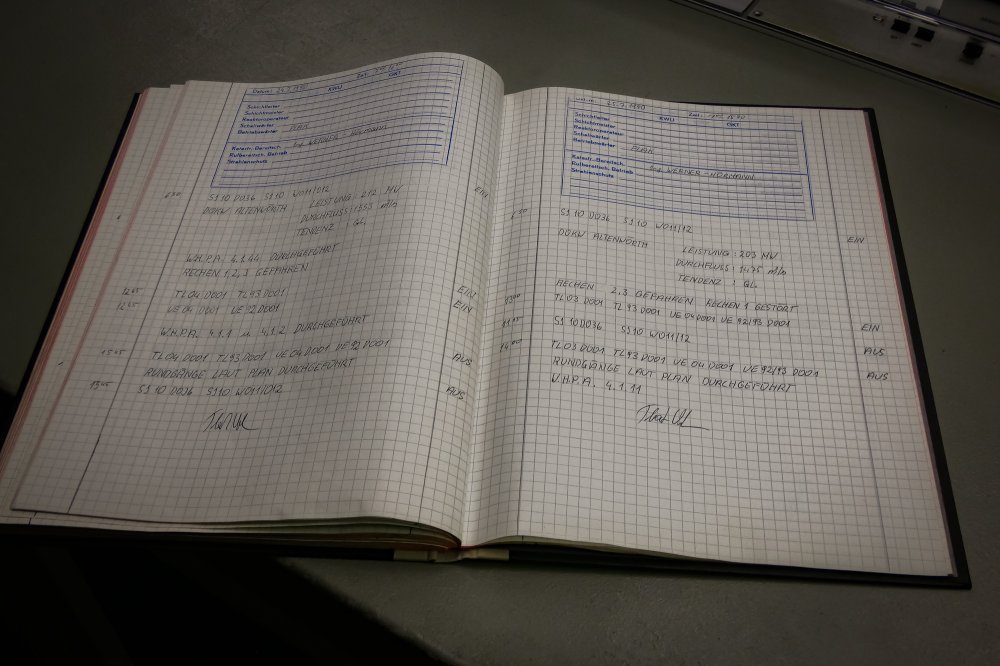 Datum: KWU Zeit: GKT
Schichtleiter
Schichtmeister
Reaktoroperateur
Schaltwärter
Betriebswärter PLAN
Katastr. Bereitsch.
Rufbereitsch. Betrieb Ing. WERNER - HÖRMANN
Strahlenschutz
6 30 S1 10 D036 S1 10 W011/012 EIN
DOKW ALTENWÖRTH LEISTUNG : 212 MW
DURCHFLUSS: 1555 m³/s
TENDENZ : GL
W.H.P.A. 4.1.44 DURCHGEFÜHRT
RECHEN 1,2,3 GEFAHREN
12 45 TL04 D001 TL93 D001 EIN
12 45 UE 04 D001 UE 92 D001 EIN
W.H.P.A. 4.1.1 u 4.1.2 DURCHGEFÜHRT
TL04 D001 TL93 D001 UE 04 D001 UE 92 D001 AUS
RUNDGÄNGE LAUT PLAN DURCHGEFÜHRT
S1 10 D036 S1 10 W011/012 AUS
25.7.1990
KWU Zeit GKT
Schichtleiter
Schichtmeister
Reaktoroperateur
Schaltwärter
Betriebswärter PLAN
Katastr. Bereitsch.
Rufbereitsch. Betrieb Ing. WERNER - HÖRMANN
Strahlenschutz
6 30 S1 10 D036 S1 10 W011/12 EIN
DOKW ALTENWÖRTH LEISTUNG : 203 MW
DURCHFLUSS : 1475 m³/s
TENDENZ : GL
RECHEN 2,3 GEFAHREN RECHEN 1 GESTÖRT
TL03 D001 TL 93 D001 UE 04 D001 UE 92/93 D001 EIN
S1 10 D036 S1 10 W011/12 AUS
TL03 D001 TL93 D001 UE 04 D001 UE 92/93 D001 AUS
RUNDGÄNGE LAUT PLAN DURCHGEFÜHRT
W.H.P.A. 4.1.11